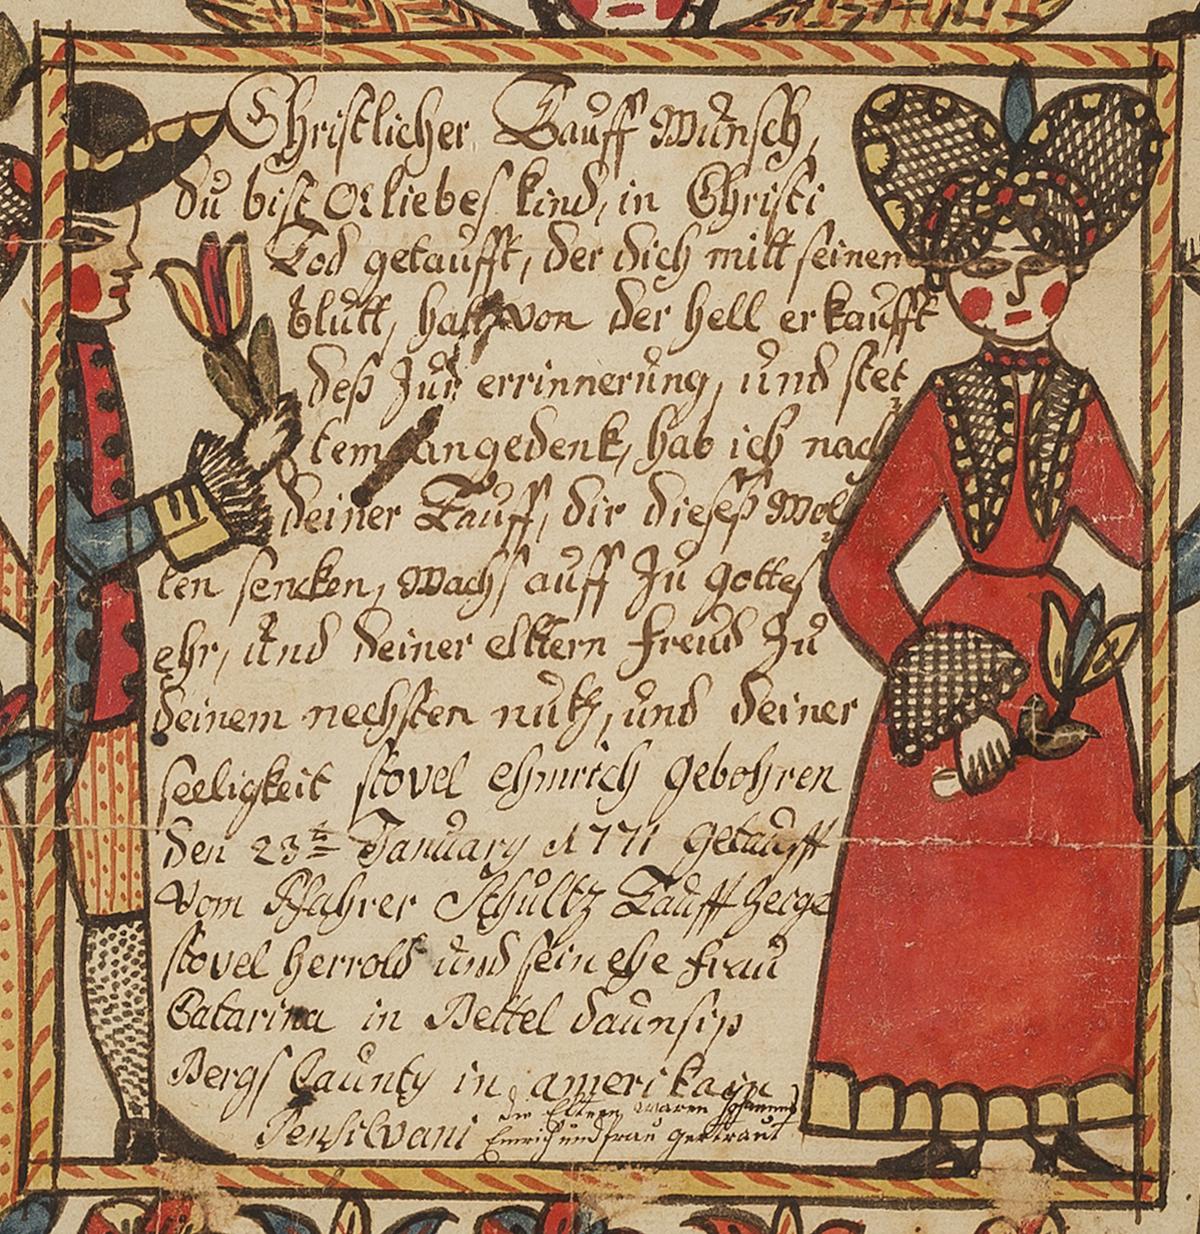 Christlicher Tauff Wunsch,
du bist O liebes kind, in Christi
Tod getaufft, der dich mitt seinem
blutt, hatt von der hell erkaufft
deß Zur errinnerung, und stet
tem angedenk, hab ich nach
deiner Tauff, dir dieseß wol
len sencken, wachs auff Zu gottes
ehr, Und deiner elttern freud Zu
deinem nechsten nutz, und deiner
seeligkeit stovel ehmrich gebohren
den 23t January 1771 getaufft
vom Pfahrer Schultz Tauff Zeige
stovel herrold und sein ehe frau
Catarina in Bettel daunsip
Bergs Caunty in amerikain
Pensilvani die Eltern waren Johannes
Emrich und frau gertraut